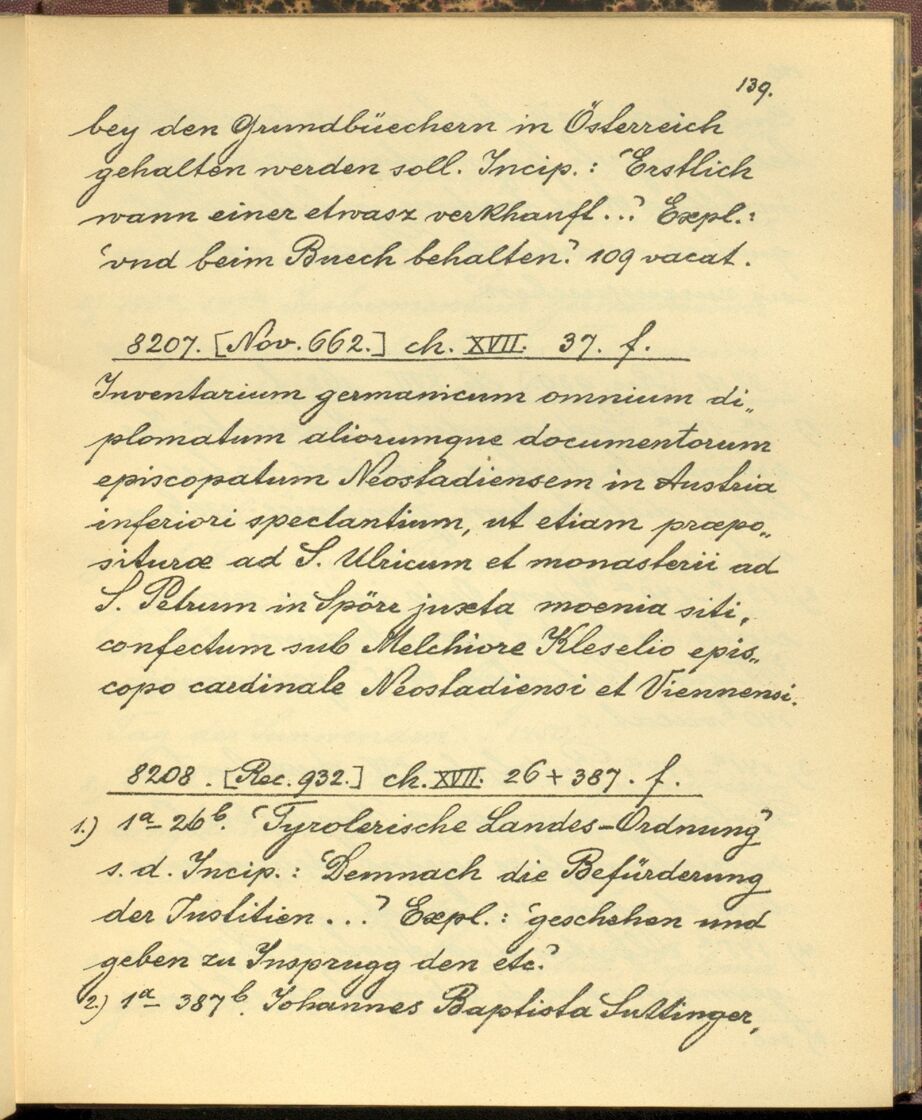 139.
bey den Grundbüechern in Österreich
gehalten werden soll. Incip.: ‘Erstlich
wann einer etwasz verkhauft...’ Expl.:
‘vnd beim Buech behalten.’ 109 vacat.
8207. [Nov. 662.] ch. XVII. 37. f.
Inventarium germanicum omnium di„
plomatum aliorumque documentorum
episcopatum Neostadiensem in Austria
inferiori spectantium, ut etiam præpo„
situræ ad S. Ulricum et monasterii ad
S. Petrum in Spörr juxta moenia siti,
confectum sub Melchiore Kleselio epis„
copo cardinale Neostadiensi et Viennensi.
8208. [Rec. 932.] ch. XVII. 26 + 387. f.
1.) 1ª– 26ᵇ. ‘Tyrolerische Landes-Ordnung’
s. d. Incip.: ‘Demnach die Befürderung
der Iustitien...’ Expl.: ‘geschehen und
geben zu Insprugg den etc.’
2.) 1ª– 387ᵇ. Iohannes Baptista Suttinger,